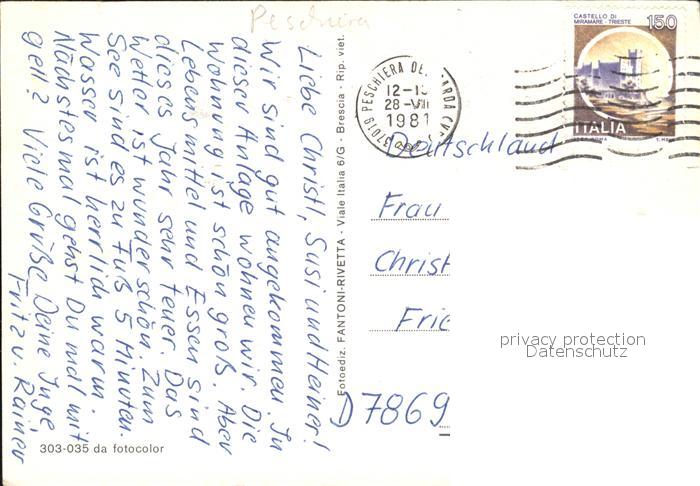 Peschiera
Liebe Christl, Susi und Heiner!
Wir sind gut angekommen. In
dieser Anlage wohnen wir. Die
Wohnung ist schön groß. Aber
Lebensmittel und Essen sind
dieses Jahr sehr teuer. Das
Wetter ist wunderschön. Zum
See sind es zu Fuß 5 Minuten.
Wasser ist herrlich warm.
Nächstesmal gehst Du mal mit
gell? Viele Grüße Deine Inge,
Fritz u. Rainer
303-035 da fotocolor
Fotoediz. FANTONI-RIVETTA - Viale Italia 6/G - Brescia - Rip. viet.
37019 PESCHIERA DEL GARDA
12-1
28-VIII
1981
CASTELLO DI
MIRAMARE - TRIESTE
150
ITALIA
Deutschland
Frau
Christ
Frie
D7869
privacy protection
Datenschutz